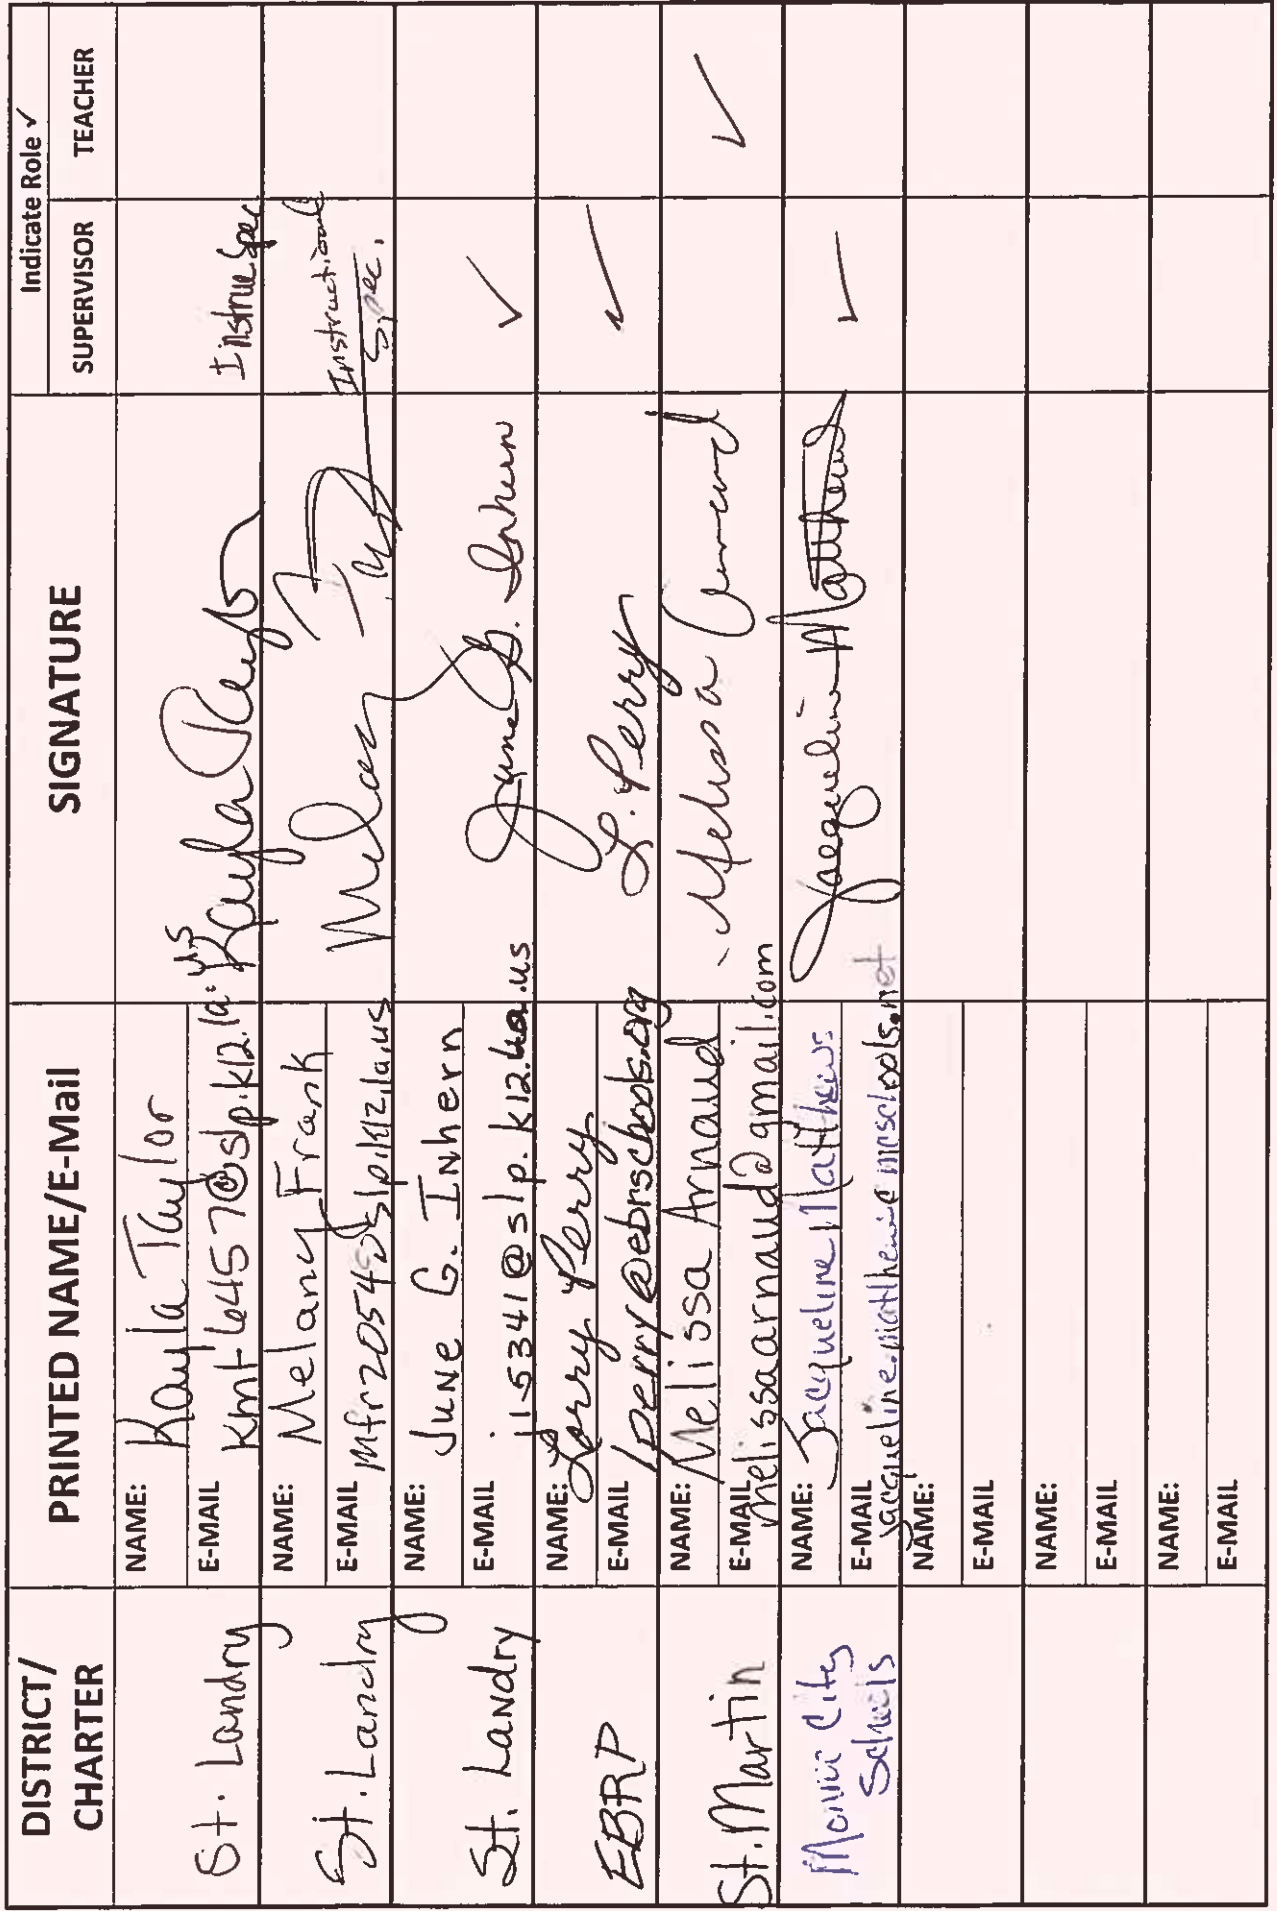 DISTRICT/ CHARTER
PRINTED NAME/E-Mail
SIGNATURE
Indicate Role ✓
SUPERVISOR
TEACHER
St. Landry
NAME: Kayla Taylor
E-MAIL kmt6457@slp.k12.la.us
Kayla
Instruc Spec
St. Landry
NAME: Melany Frank
E-MAIL mfr2054@slp.k12.la.us
Melany
Instructional Spec.
St. Landry
NAME: June G. Inhern
E-MAIL ji5341@slp.k12.la.us
June G. Inhern
✓
EBRP
NAME: Lorry Perry
E-MAIL lperry@ebrschools.org
L. Perry
✓
St. Martin
NAME: Melissa Arnaud
E-MAIL melissaarnaud@gmail.com
Melissa Arnaud
✓
Monroe City Schools
NAME: Jacqueline Matthews
E-MAIL jacqueline.matthews@mcschools.net
Jacqueline Matthews
✓
NAME:
E-MAIL
NAME:
E-MAIL
NAME:
E-MAIL